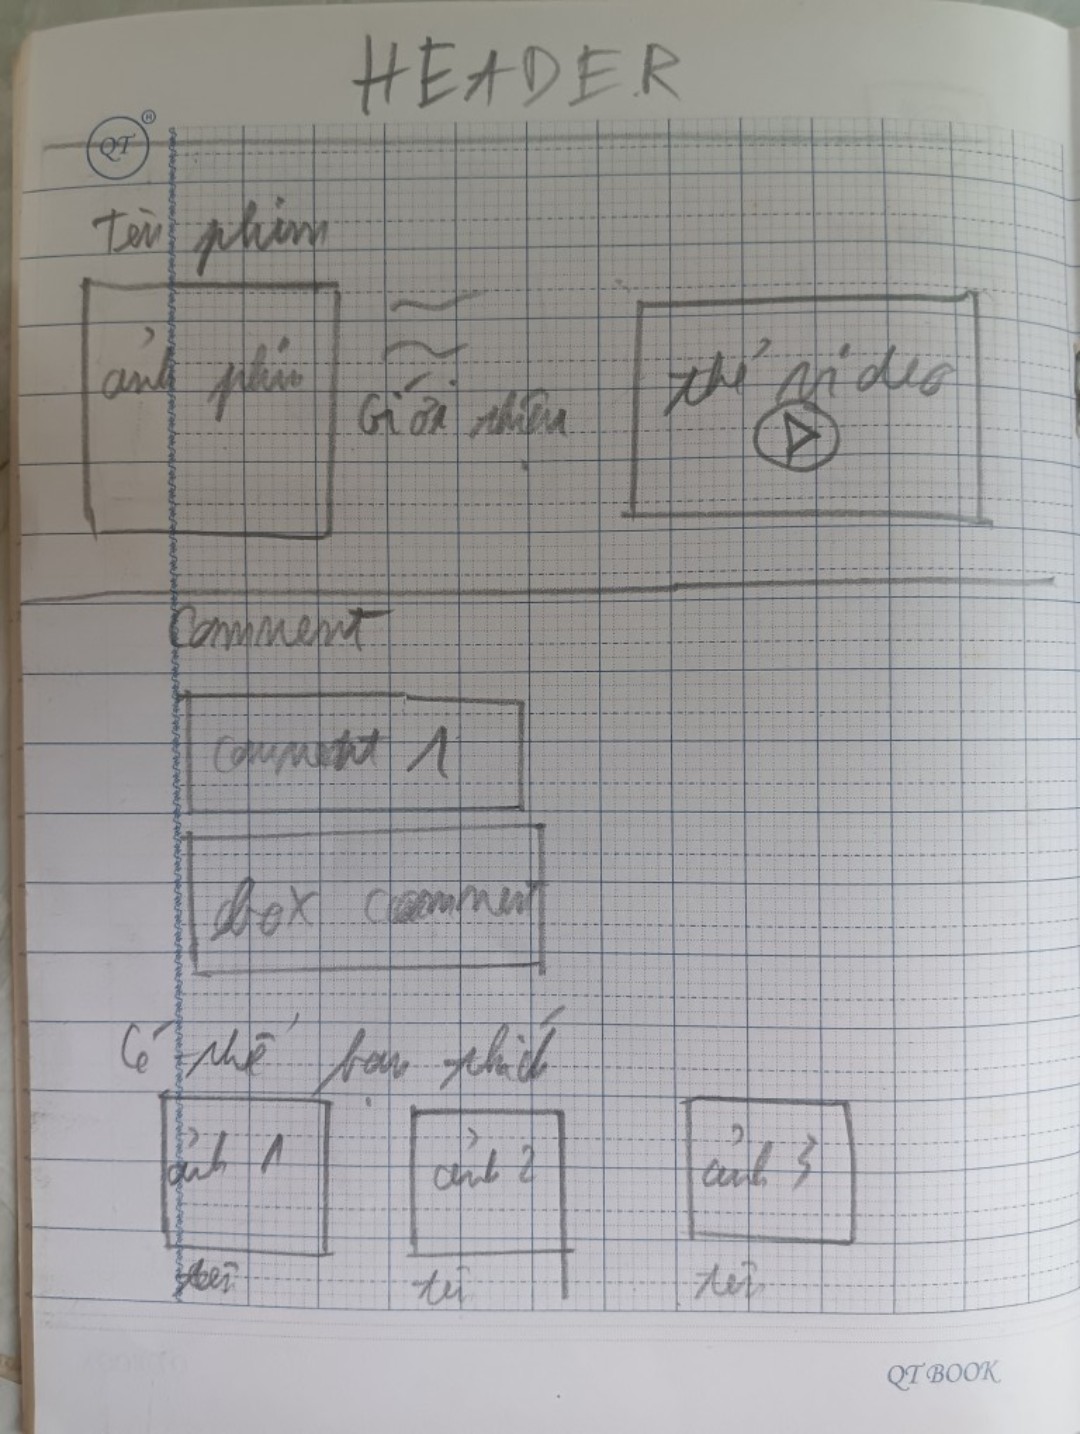 HEADER
QT ®
Tên phim
ảnh phim
Giới thiệu
thẻ video
Comment
comment 1
box comment
Có thể bạn thích
ảnh 1
ảnh 2
ảnh 3
tên
tên
tên
QT BOOK